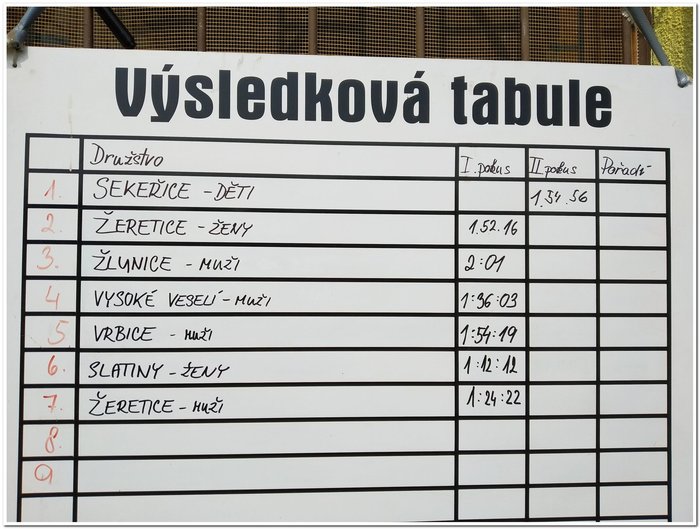 Výsledková tabule
Družstvo I. pokus II. pokus Pořadí
1. SEKEŘICE - DĚTI 1.54.56
2. ŽERETICE - ŽENY 1.52.16
3. ŽLUNICE - MUŽI 2:01
4 VYSOKÉ VESELÍ - MUŽI 1:36:03
5 VRBICE - MUŽI 1:54:19
6. SLATINY - ŽENY 1:12:12
7. ŽERETICE - MUŽI 1:24:22
8.
9